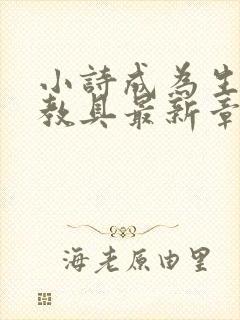 小詩成為生
教具最新章
海老原由里